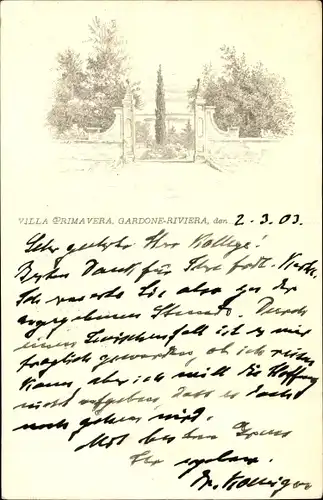 VILLA PRIMAVERA, GARDONE-RIVIERA, den 2.3.03.
Sehr geehrter Herr Kollege!
Besten Dank für Ihre frdl. Karte.
Ich erwarte Sie also zu der
angegebenen Stunde. Durch
einen Zwischenfall ist es mir
fraglich geworden, ob ich reisen
kann, aber ich will die Hoffnung
nicht aufgeben, dass es doch
noch gehen wird.
Mit besten Gruss
Ihr ergeben.
Dr.